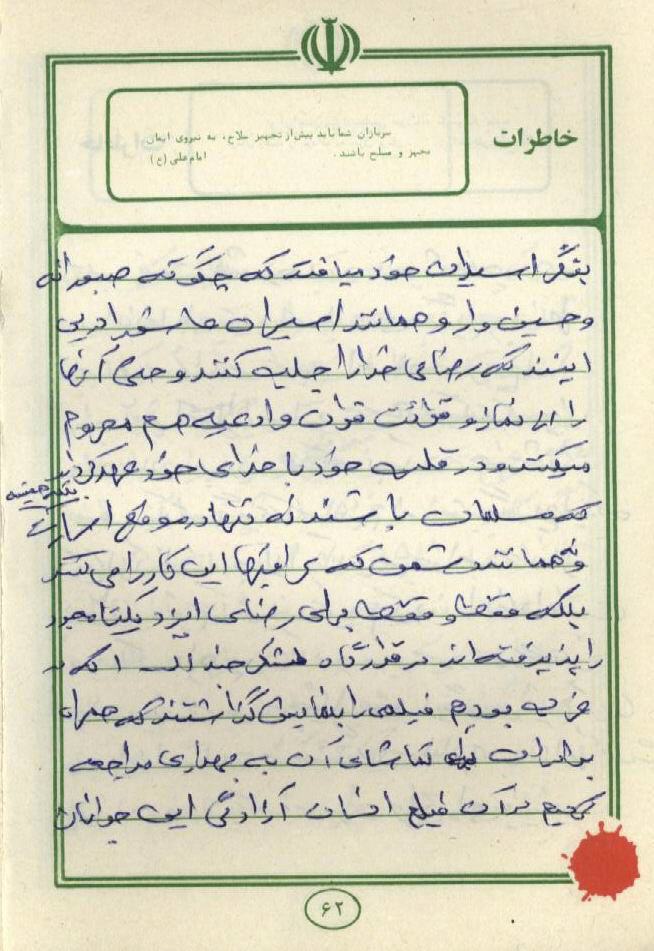 خاطرات
سربازان شما باید پیش از تجهیز سلاح، به نیروی ایمان
مجهز و مسلح باشند.
امام علی (ع)
اسیران خود میافتند که چگونه صبورانه
و حسین وار و همانند اسیران عاشورا در پی
اینند که رضای خدا را جلب کنند و حتی آنها
را از نماز و قرائت قرآن و ادعیه هم محروم
میکنند و در قلب خود با خدای خود عهد کردند
که مسلمان باشند نه تنها در موقع اسارت بلکه همیشه
و همانند دشمن که عراقیها این کار را می کنند
بلکه فقط و فقط برای رضای ایزد یکتا
را پذیرفته اند در قرارگاه لشگر
بودم فیلمی را بنمایش گذاشتند که همراه
برادران برای تماشای آن به بهداری مراجعه
کردیم در آن فیلم آزادگی این جوانان
۶۲